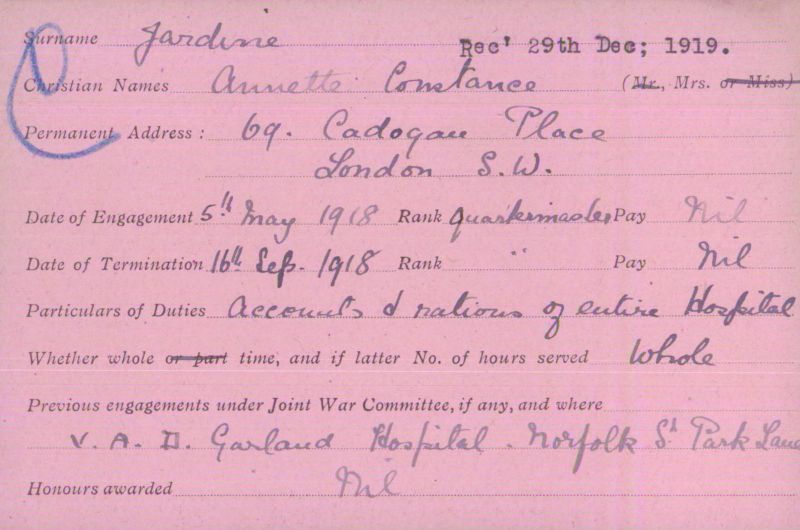 Surname Jardine Rec' 29th Dec; 1919.
Christian Names Annette Constance (Mr., Mrs. or Miss)
Permanent Address : 69. Cadogan Place
London S.W.
Date of Engagement 5th May 1918 Rank Quartermaster Pay Nil
Date of Termination 16th Sep. 1918 Rank " Pay Nil
Particulars of Duties Accounts & rations of entire Hospital
Whether whole or part time, and if latter No. of hours served Whole
Previous engagements under Joint War Committee, if any, and where
V.A.D. Garland Hospital. Norfolk St Park Lane
Honours awarded Nil